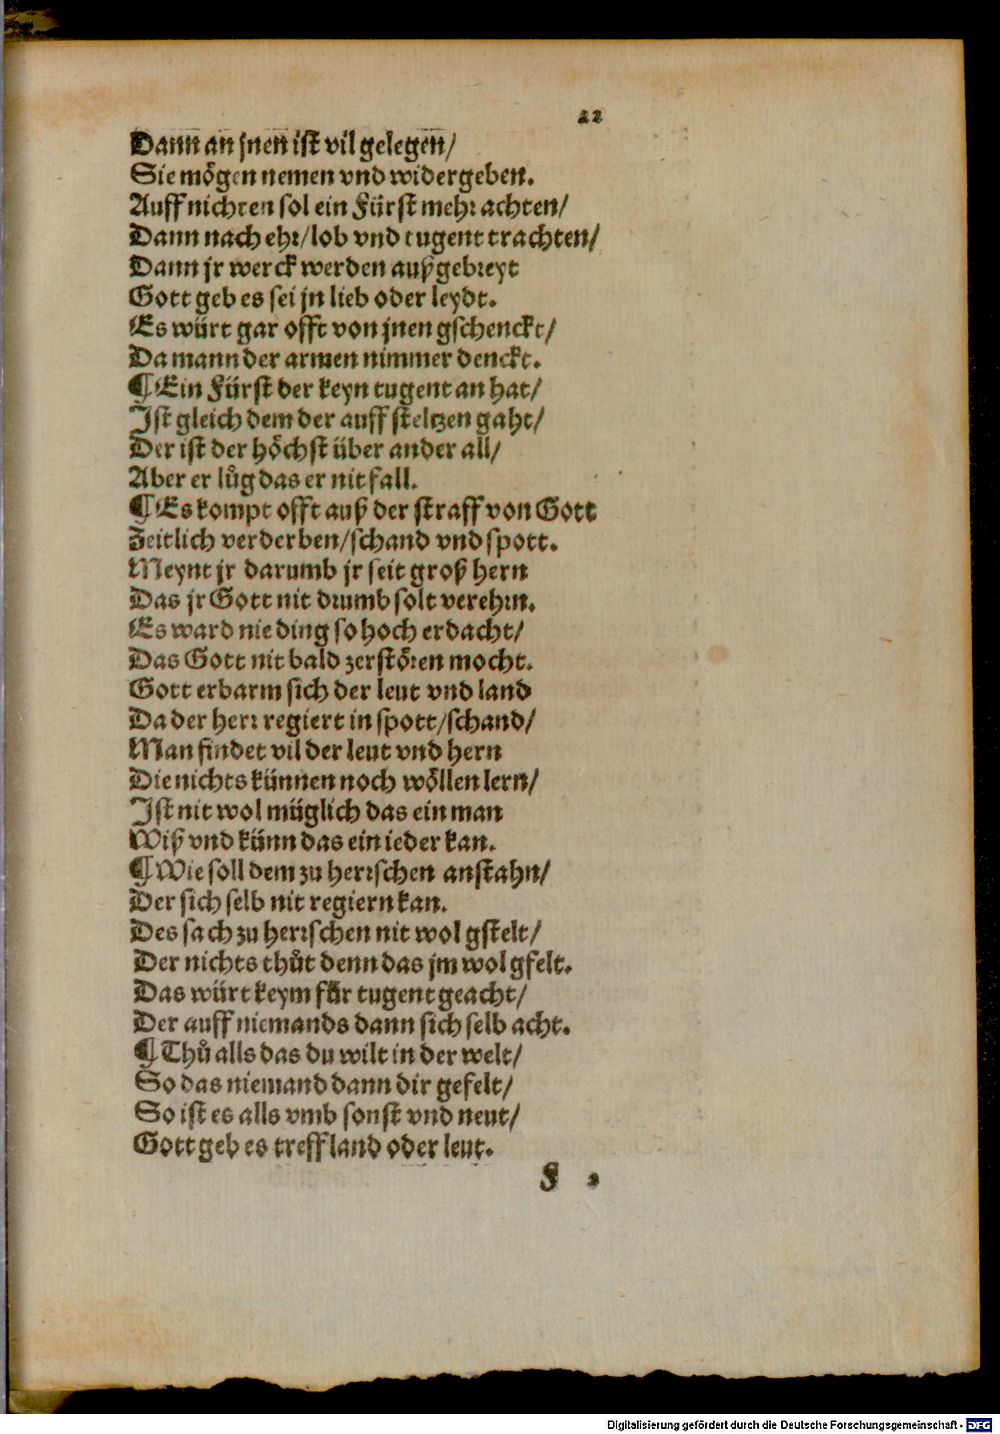 22
Dann an jnen ist vil gelegen/
Sie mögen nemen vnd widergeben.
Auff nichten sol ein Fürst mehr achten/
Dann nach ehr/lob vnd tugent trachten/
Dann jr werck werden außgebreyt
Gott geb es sei jn lieb oder leydt.
Es würt gar offt von jnen gschenckt/
Da mann der armen nimmer denckt.
¶ Ein Fürst der keyn tugent an hat/
Ist gleich dem der auff steltzen gaht/
Der ist der höchst über ander all/
Aber er lůg das er nit fall.
¶ Es kompt offt auß der straff von Gott
Zeitlich verderben/schand vnd spott.
Meynt jr darumb jr seit groß hern
Das jr Gott nit drumb solt verehrn.
Es ward nie ding so hoch erdacht/
Das Gott nit bald zerstören mocht.
Gott erbarm sich der leut vnd land
Da der herr regiert in spott/schand/
Man findet vil der leut vnd hern
Die nichts künnen noch wöllen lern/
Ist nit wol müglich das ein man
Wiß vnd künn das ein ieder kan.
¶ Wie soll dem zu herrschen anstahn/
Der sich selb nit regiern kan.
Des sach zu herrschen nit wol gstelt/
Der nichts thůt denn das jm wol gfelt.
Das würt keym für tugent geacht/
Der auff niemands dann sich selb acht.
¶ Thů alls das du wilt in der welt/
So das niemand dann dir gefelt/
So ist es alls vmb sonst vnd neut/
Gott geb es treff land oder leut.
F 2
Digitalisierung gefördert durch die Deutsche Forschungsgemeinschaft - DFG